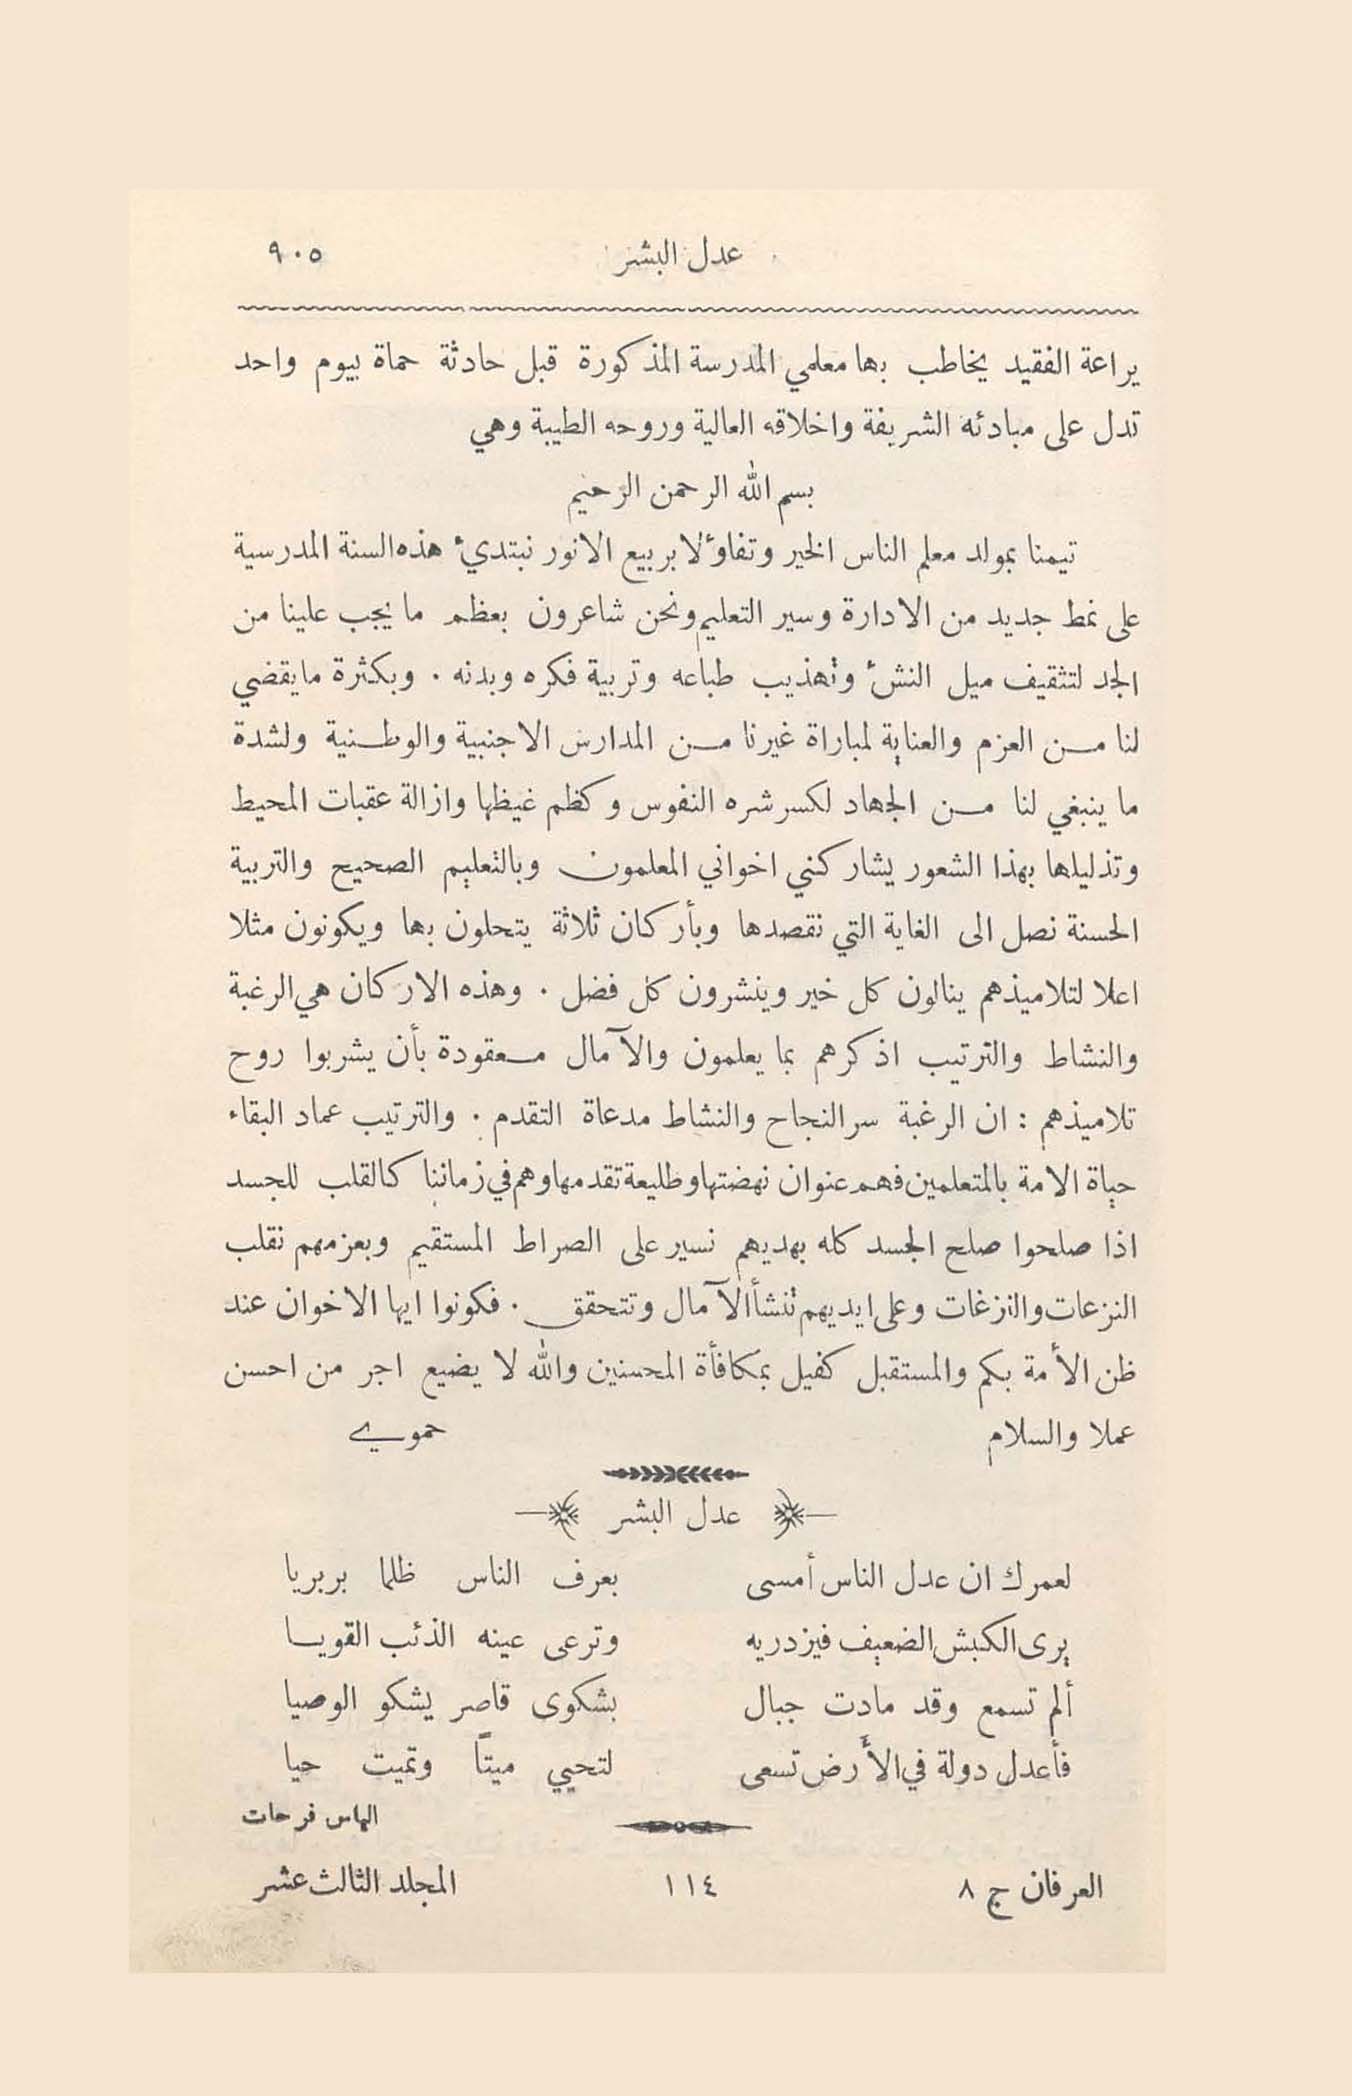 عدل البشر ٩٠٥
يراعة الفقيد يخاطب بها معلمي المدرسة المذكورة قبل حادثة حماة بيوم واحد
تدل على مبادئه الشريفة واخلاقه العالية وروحه الطيبة وهي
بسم الله الرحمن الرحيم
تيمنا بمولد معلم الناس الخير وتفاؤلا بربيع الانور نبتدئ هذه السنة المدرسية
على نمط جديد من الادارة وسير التعليم ونحن شاعرون بعظم ما يجب علينا من
الجد لتثقيف ميل النشئ وتهذيب طباعه وتربية فكره وبدنه . وبكثرة ما يقضي
لنا من العزم والعناية لمباراة غيرنا من المدارس الاجنبية والوطنية ولشدة
ما ينبغي لنا من الجهاد لكسر شره النفوس وكظم غيظها وازالة عقبات المحيط
وتذليلها بهذا الشعور يشاركني اخواني المعلمون وبالتعليم الصحيح والتربية
الحسنة نصل الى الغاية التي نقصدها وبأركان ثلاثة يتحلون بها ويكونون مثلا
اعلا لتلاميذهم ينالون كل خير وينشرون كل فضل . وهذه الاركان هي الرغبة
والنشاط والترتيب اذكرهم بما يعلمون والآمال معقودة بأن يشربوا روح
تلاميذهم : ان الرغبة سر النجاح والنشاط مدعاة التقدم . والترتيب عماد البقاء
حياة الامة بالمتعلمين فهم عنوان نهضتها وطليعة تقدمها وهم في زماننا كالقلب للجسد
اذا صلحوا صلح الجسد كله بهديهم نسير على الصراط المستقيم وبعزمهم نقلب
النزعات والنزغات وعلى ايديهم تنشأ الآمال وتتحقق . فكونوا ايها الاخوان عند
ظن الأمة بكم والمستقبل كفيل بمكافأة المحسنين والله لا يضيع اجر من احسن
عملا والسلام حموي
عدل البشر
لعمرك ان عدل الناس أمسى بعرف الناس ظلما بربريا
يرى الكبش الضعيف فيزدريه وترعى عينه الذئب القويا
ألم تسمع وقد مادت جبال بشكوى قاصر يشكو الوصيا
فأعدل دولة في الأرض تسعى لتحيي ميتاً وتميت حيا
الياس فرحات
العرفان ج ٨ ١١٤ المجلد الثالث عشر